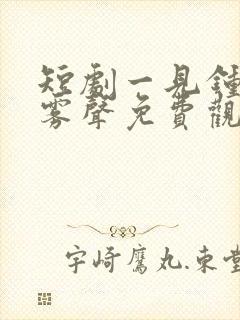 短劇一見鍾
霧聲免費觀
宇崎鷹丸.東堂